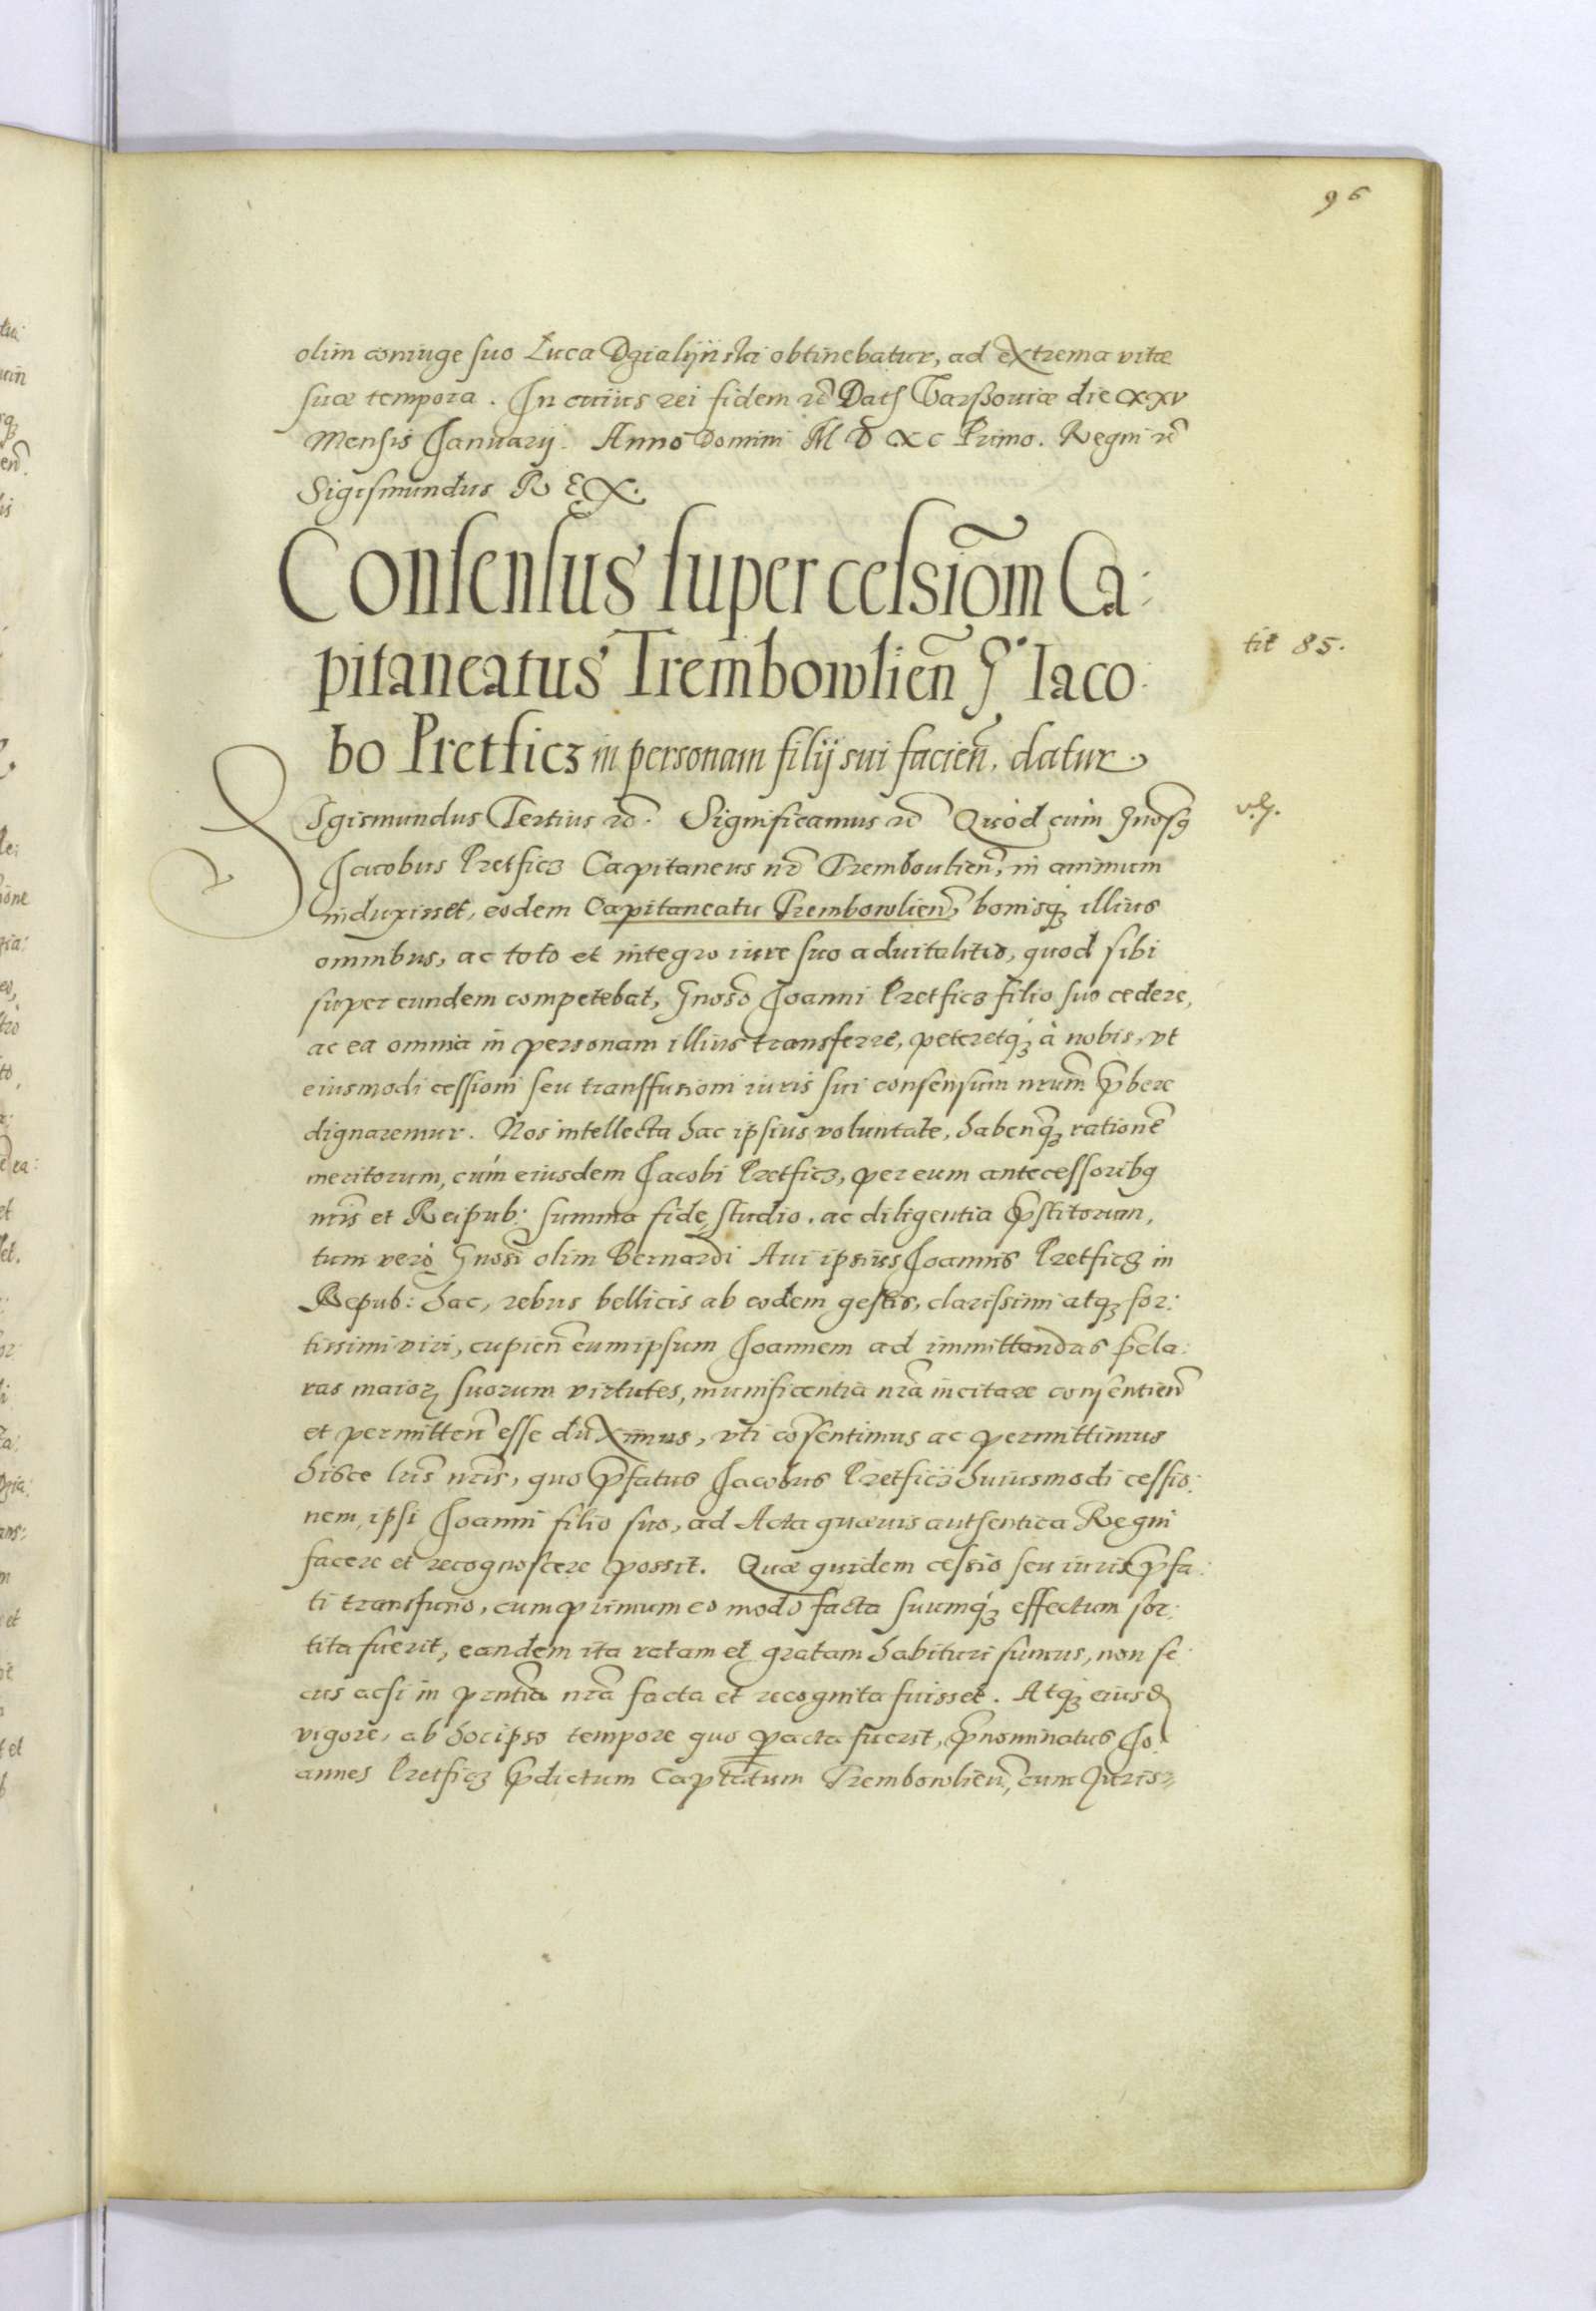 96
olim coniuge suo Luca Dzialijnski obtinebatur, ad extrema vitæ
suæ tempora. In cuius rei fidem rc̃ Dat Varßoviæ die xxv
Mensis Januarij. Anno Domini M D XC Primo. Regni rc̃
Sigismundus REX.
Consensus super cessiom̃ Ca:
pitaneatus Trembowlien̄ G. Iaco:
bo Pretficz in personam filij sui facien̄. datur.
tit 85.
Sigismundus Tertius rc̃. Significamus rc̃ Quòd cùm Gnosꝫ
Jacobus Pretficz Capitaneus nr̃ Trembowlien̄, in animum
induxisset, eodem Capitaneatu Trembowlien̄, bonisqꝫ illius
omnibus, ac toto et integro iure suo advitalitio, quod sibi
super eundem competebat, Gnoso Joanni Pretficz filio suo cedere,
ac ea omnia in personam illius transferre, peteretqꝫ à nobis, vt
eiusmodi cessioni seu transfusioni iuris sui consensum nrũm p̄bere
dignaremur. Nos intellecta hac ipsius voluntate, habenqꝫ rationē
meritorum, cùm eiusdem Jacobi Pretficz, per eum antecessoribꝫ
nr̃is et Reipub: summa fide, studio, ac diligentia p̄stitorum,
tum verò Gnosi olim Bernardi Aui ipsius Joannis Pretficz in
Repub: hac, rebus bellicis ab eodem gestis, clarissimi atqꝫ for:
tissimi viri, cupien̄ eum ipsum Joannem ad immittandas p̄cla:
ras maioꝝ suorum virtutes, munificentia nr̃a incitare consentien̄
et permitten̄ esse duximus, vti cõsentimus ac permittimus
hisce lr̃is nr̃is, quo p̄fatus Jacobus Pretficz huiusmodi cessio:
nem, ipsi Joanni filio suo, ad Acta quævis authentica Regni
facere et recognoscere possit. Quæ quidem cessio seu iuris p̄fa:
ti transfusio, cumprimum eo modo facta suumqꝫ effectum sor:
tita fuerit, eandem ita ratam et gratam habituri sumus, non se
cus acsi in pr̃ntia nr̃a facta et recognita fuisset. Atqꝫ eiusđ
vigore, ab hoc ipso tempore quo ꝑacta fuerit, p̄nominatus Jo:
annes Pretficz p̄dictum Captātum Trembowlien̄, cum Juris⹀